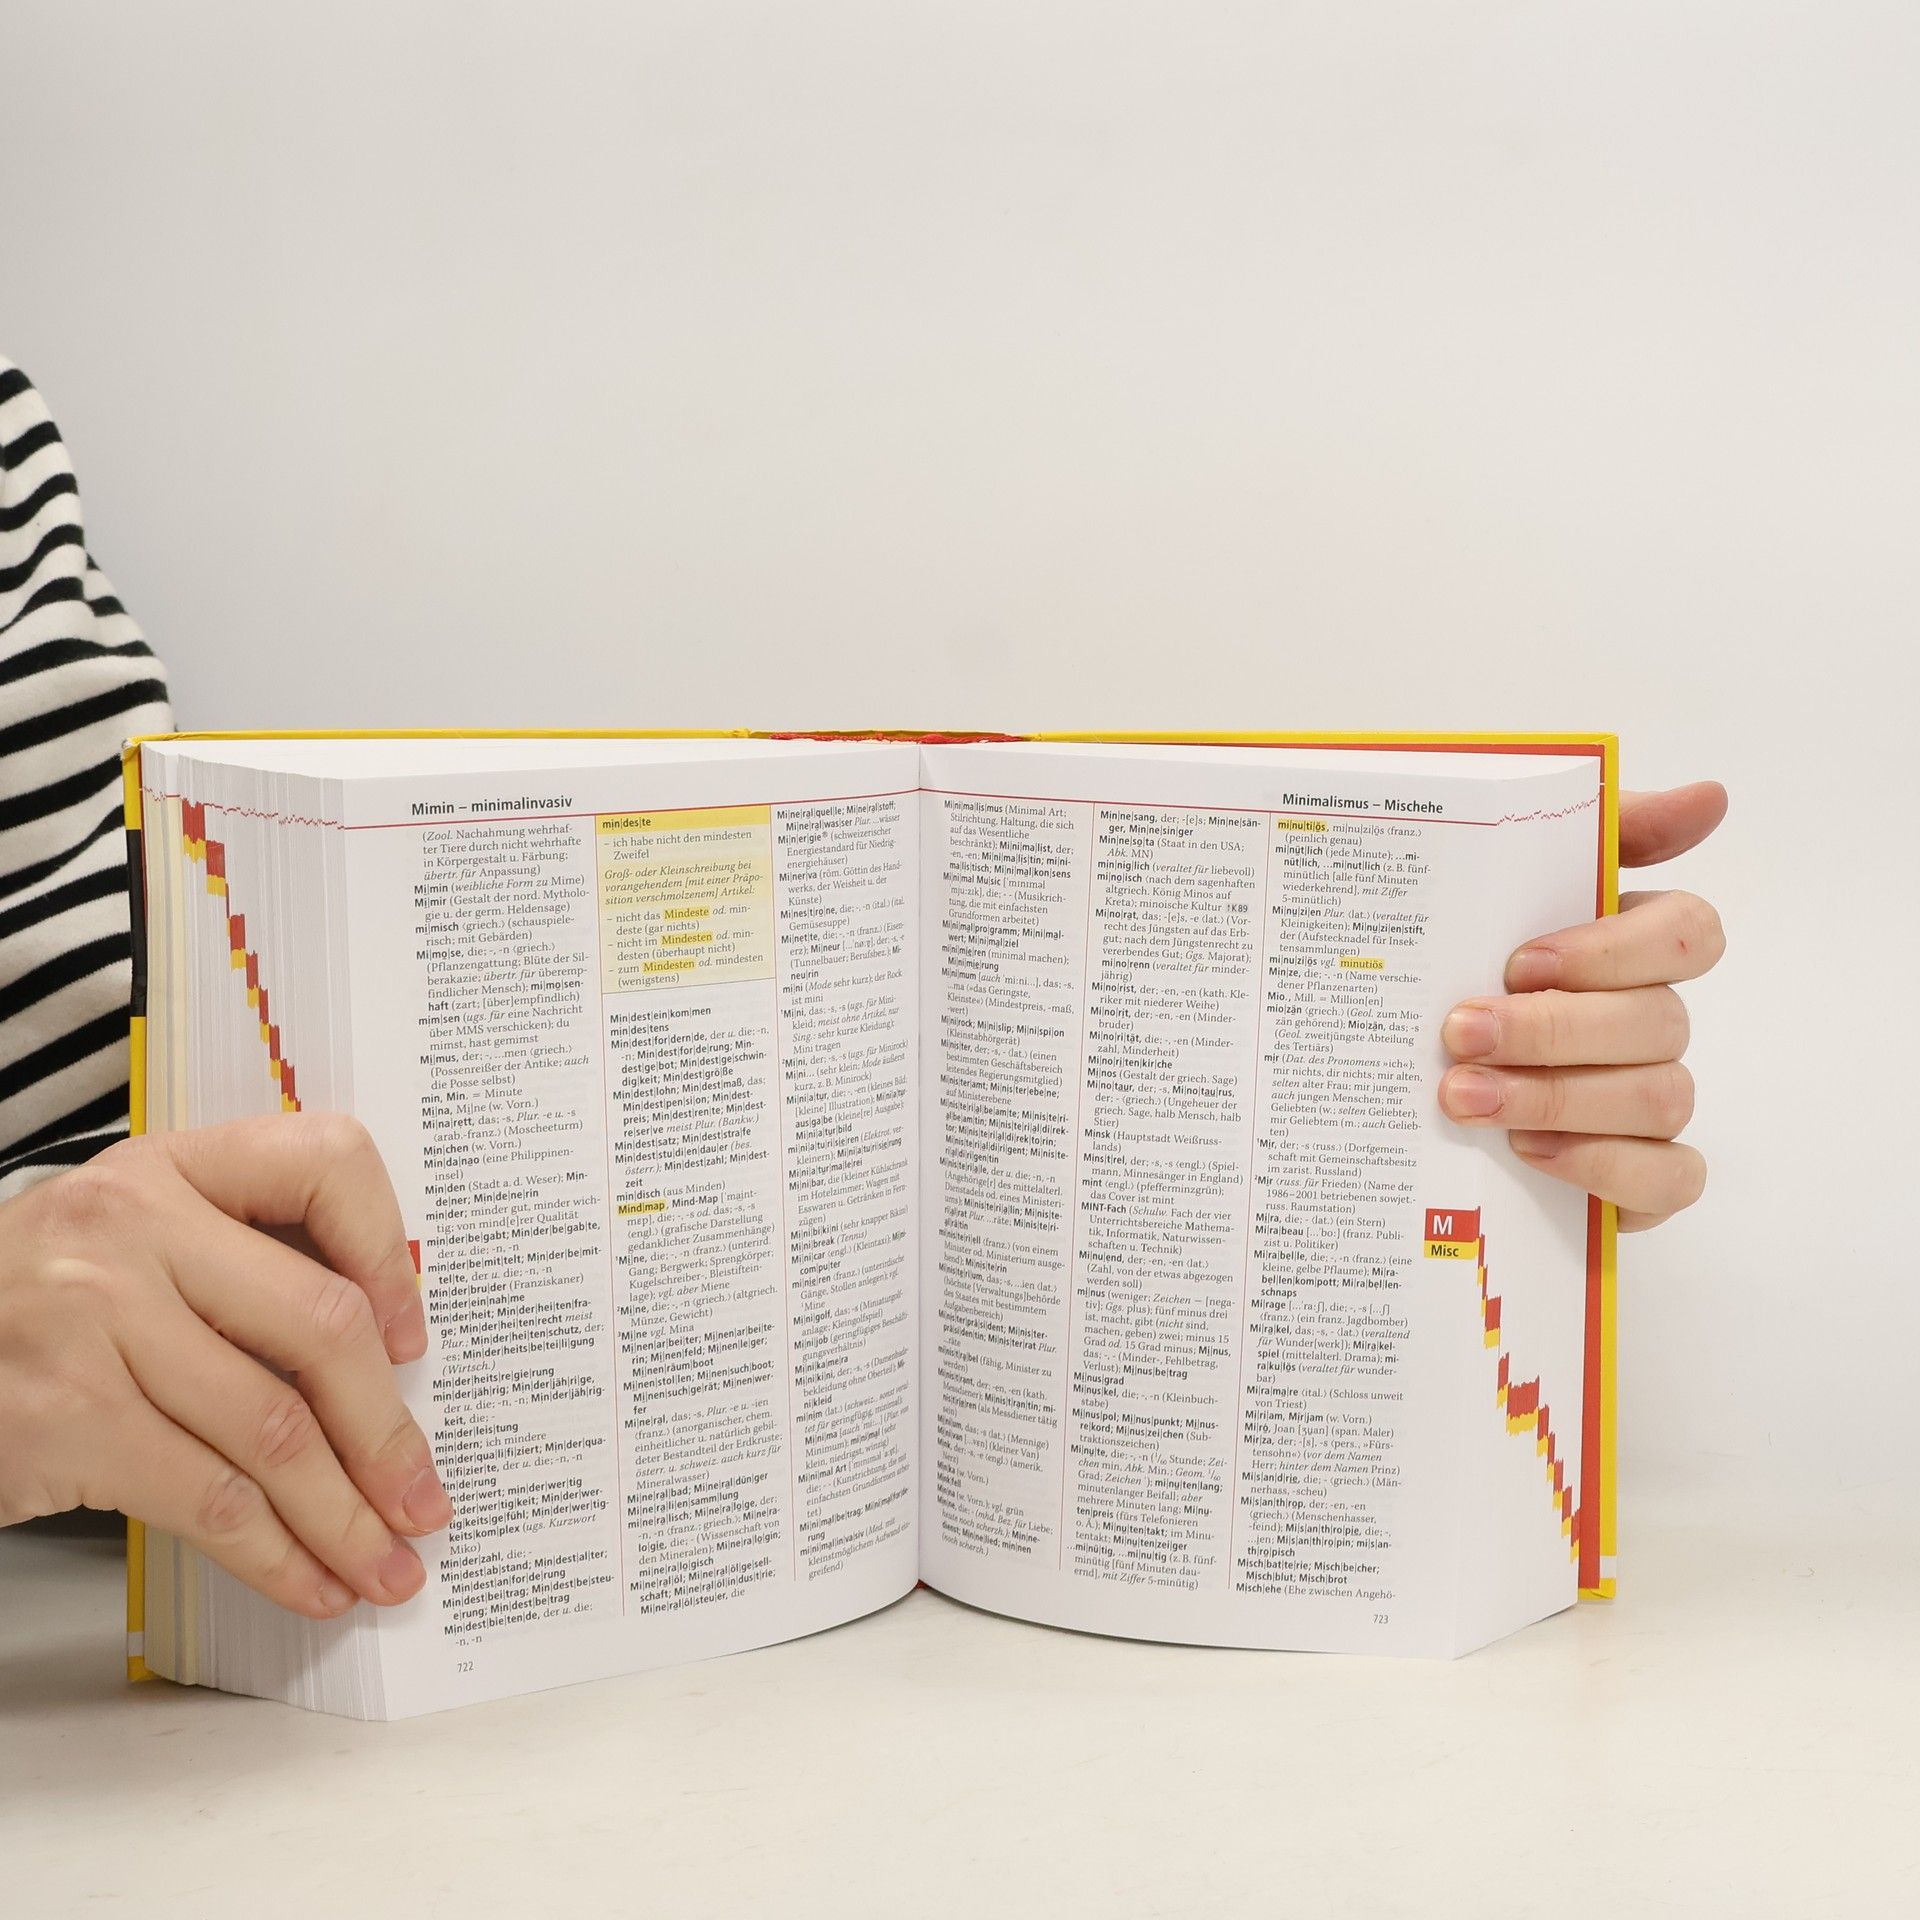 Mimin – minimalinvasiv
(Zool. Nachahmung wehrhaf-
ter Tiere durch nicht wehrhafte
in Körpergestalt u. Färbung;
übertr. für Anpassung)
Mi|min (weibliche Form zu Mime)
Mi|mir (Gestalt der nord. Mytholo-
gie u. der germ. Heldensage)
mi|misch ⟨griech.⟩ (schauspiele-
risch; mit Gebärden)
Mi|mo|se, die; -, -n ⟨griech.⟩
(Pflanzengattung; Blüte der Sil-
berakazie; übertr. für überemp-
findlicher Mensch); mi|mo|sen-
haft (zart; [über]empfindlich)
mim|sen (ugs. für eine Nachricht
über MMS verschicken); du
mimst, hast gemimst
Mi|mus, der; -, ...men ⟨griech.⟩
(Possenreißer der Antike; auch
die Posse selbst)
min, Min. = Minute
Mi|na, Mi|ne (w. Vorn.)
Mi|na|rett, das; -s, Plur. -e u. -s
⟨arab.-franz.⟩ (Moscheeturm)
Min|chen (w. Vorn.)
Min|da|nao (eine Philippinen-
insel)
Min|den (Stadt a. d. Weser); Min-
de|ner; Min|de|ne|rin
min|der; minder gut, minder wich-
tig; von mind[e]rer Qualität
min|der|be|gabt; Min|der|be|gab|te,
der u. die; -n, -n
min|der|be|mit|telt; Min|der|be|mit-
tel|te, der u. die; -n, -n
Min|der|bru|der (Franziskaner)
Min|der|ein|nah|me
Min|der|heit; Min|der|hei|ten|fra-
ge; Min|der|hei|ten|recht meist
Plur.; Min|der|hei|ten|schutz, der;
-es; Min|der|heits|be|tei|li|gung
(Wirtsch.)
Min|der|heits|re|gie|rung
min|der|jäh|rig; Min|der|jäh|ri|ge,
der u. die; -n, -n; Min|der|jäh|rig-
keit, die; -
Min|der|leis|tung
min|dern; ich mindere
min|der|qua|li|fi|ziert; Min|der|qua-
li|fi|zier|te, der u. die; -n, -n
der|wert; min|der|wer|tig
keits|kom|plex (ugs. Kurzwort
Miko)
Min|der|zahl, die; -
Min|dest|ab|stand; Min|dest|al|ter;
Min|dest|an|for|de|rung
Min|dest|bei|trag; Min|dest|be|steu-
e|rung; Min|dest|be|trag
Min|dest|bie|ten|de, der u. die;
-n, -n
722
min|des|te
– ich habe nicht den mindesten
Zweifel
Groß- oder Kleinschreibung bei
vorangehendem [mit einer Präpo-
sition verschmolzenem] Artikel:
– nicht das Mindeste od. min-
deste (gar nichts)
– nicht im Mindesten od. min-
desten (überhaupt nicht)
– zum Mindesten od. mindesten
(wenigstens)
Min|dest|ein|kom|men
min|des|tens
Min|dest|for|dern|de, der u. die; -n,
-n; Min|dest|for|de|rung; Min-
dest|ge|bot; Min|dest|ge|schwin-
dig|keit; Min|dest|grö|ße
Min|dest|lohn; Min|dest|maß, das;
Min|dest|pen|si|on; Min|dest-
preis; Min|dest|ren|te; Min|dest-
re|ser|ve meist Plur. (Bankw.)
Min|dest|satz; Min|dest|stra|fe
Min|dest|stu|di|en|dau|er (bes.
österr.); Min|dest|zahl; Min|dest-
zeit
min|disch (aus Minden)
Mind|map, Mind-Map [ˈmaint-
mɛp], die; -, -s od. das; -s, -s
⟨engl.⟩ (grafische Darstellung
gedanklicher Zusammenhänge)
¹Mi|ne, die; -, -n ⟨franz.⟩ (unterird.
Gang; Bergwerk; Sprengkörper;
Kugelschreiber-, Bleistiftein-
lage); vgl. aber Miene
²Mi|ne, die; -, -n ⟨griech.⟩ (altgriech.
Münze, Gewicht)
³Mi|ne vgl. Mina
Mi|nen|ar|bei|ter; Mi|nen|ar|bei|te-
rin; Mi|nen|feld; Mi|nen|le|ger;
Mi|nen|räum|boot
Mi|nen|stol|len; Mi|nen|such|boot;
Mi|nen|such|ge|rät; Mi|nen|wer-
fer
Mi|ne|ral, das; -s, Plur. -e u. -ien
⟨franz.⟩ (anorganischer, chem.
einheitlicher u. natürlich gebil-
deter Bestandteil der Erdkruste;
österr. u. schweiz. auch kurz für
Mineralwasser)
Mi|ne|ral|bad; Mi|ne|ral|dün|ger
Mi|ne|ra|li|en|samm|lung
mi|ne|ra|lisch; Mi|ne|ra|lo|ge, der;
-n, -n ⟨franz.; griech.⟩; Mi|ne|ra-
lo|gie, die; - (Wissenschaft von
den Mineralen); Mi|ne|ra|lo|gin;
mi|ne|ra|lo|gisch
Mi|ne|ral|öl; Mi|ne|ral|öl|ge|sell-
schaft; Mi|ne|ral|öl|in|dus|trie;
Mi|ne|ral|öl|steu|er, die
Mi|ne|ral|quel|le; Mi|ne|ral|stoff;
Mi|ne|ral|was|ser Plur. ...wässer
Mi|n|er|gie® (schweizerischer
Energiestandard für Niedrig-
energiehäuser)
Mi|ner|va (röm. Göttin des Hand-
werks, der Weisheit u. der
Künste)
Mi|nes|t|ro|ne, die; -, -n ⟨ital.⟩ (ital.
Gemüsesuppe)
Mi|net|te, die; -, -n ⟨franz.⟩ (Eisen-
erz); Mi|neur [...ˈnøːɐ̯], der; -s, -e
(Tunnelbauer; Berufsbez.); Mi-
neu|rin
mi|ni (Mode sehr kurz); der Rock
ist mini
¹Mi|ni, das; -s, -s (ugs. für Mini-
kleid; meist ohne Artikel, nur
Sing.: sehr kurze Kleidung);
Mini tragen
²Mi|ni, der; -s, -s (ugs. für Minirock)
Mi|ni... (sehr klein; Mode äußerst
kurz, z. B. Minirock)
Mi|ni|a|tur, die; -, -en (kleines Bild;
[kleine] Illustration); Mi|ni|a|tur-
aus|ga|be (kleine[re] Ausgabe);
Mi|ni|a|tur|bild
mi|ni|a|tu|ri|sie|ren (Elektrot. ver-
kleinern); Mi|ni|a|tu|ri|sie|rung
Mi|ni|a|tur|ma|le|rei
Mi|ni|bar, die (kleiner Kühlschrank
im Hotelzimmer; Wagen mit
Esswaren u. Getränken in Fern-
zügen)
Mi|ni|bi|ki|ni (sehr knapper Bikini)
Mi|ni|break (Tennis)
Mi|ni|car ⟨engl.⟩ (Kleintaxi); Mi|ni-
com|pu|ter
mi|nie|ren ⟨franz.⟩ (unterirdische
Gänge, Stollen anlegen); vgl.
¹Mine
Mi|ni|golf, das; -s (Miniaturgolf-
anlage; Kleingolfspiel)
Mi|ni|job (geringfügiges Beschäfti-
gungsverhältnis)
Mi|ni|ka|me|ra
Mi|ni|ki|ni, der; -s, -s (Damenbade-
bekleidung ohne Oberteil); Mi-
ni|kleid
Minimum); mi|ni|mal (sehr
klein, niedrigst, winzig)
Mi|ni|mal Art
die; - - (Kunstrichtung, die mit
einfachsten Grundformen arbei-
tet)
Mi|ni|mal|be|trag; Mi|ni|mal|for|de-
rung
mi|ni|mal|in|va|siv (Med. mit
kleinstmöglichem Aufwand ein-
greifend)
Minimalismus – Mischehe
Mi|ni|ma|lis|mus (Minimal Art;
Stilrichtung, Haltung, die sich
auf das Wesentliche
beschränkt); Mi|ni|ma|list, der;
-en, -en; Mi|ni|ma|lis|tin; mi|ni-
ma|lis|tisch; Mi|ni|mal|kon|sens
Mi|ni|mal Mu|sic [ˈminɪməl
ˈmjuːzɪk], die; - - (Musikrich-
tung, die mit einfachsten
Grundformen arbeitet)
Mi|ni|mal|pro|gramm; Mi|ni|mal-
wert; Mi|ni|mal|ziel
mi|ni|mie|ren (minimal machen);
Mi|ni|mie|rung
Mi|ni|mum [auch ˈmiːni...], das; -s,
...ma (»das Geringste,
Kleinste«) (Mindestpreis, -maß,
-wert)
Mi|ni|rock; Mi|ni|slip; Mi|ni|spi|on
(Kleinstabhörgerät)
Mi|nis|ter, der; -s, - ⟨lat.⟩ (einen
bestimmten Geschäftsbereich
leitendes Regierungsmitglied)
Mi|nis|ter|amt; Mi|nis|ter|ebe|ne;
auf Ministerebene
Mi|nis|te|ri|al|be|am|te; Mi|nis|te|ri-
al|be|am|tin; Mi|nis|te|ri|al|di|rek-
tor; Mi|nis|te|ri|al|di|rek|to|rin;
Mi|nis|te|ri|al|di|ri|gent; Mi|nis|te-
ri|al|di|ri|gen|tin
Mi|nis|te|ri|a|le, der u. die; -n, -n
(Angehörige[r] des mittelalterl.
Dienstadels od. eines Ministeri-
ums); Mi|nis|te|ri|a|lin; Mi|nis|te-
ri|al|rat Plur. ...räte; Mi|nis|te|ri-
al|rä|tin
mi|nis|te|ri|ell ⟨franz.⟩ (von einem
Minister od. Ministerium ausge-
hend); Mi|nis|te|rin
Mi|nis|te|ri|um, das; -s, ...ien ⟨lat.⟩
(höchste [Verwaltungs]behörde
des Staates mit bestimmtem
Aufgabenbereich)
Mi|nis|ter|prä|si|dent; Mi|nis|ter-
prä|si|den|tin; Mi|nis|ter|rat Plur.
...räte
mi|nis|t|ra|bel (fähig, Minister zu
werden)
Mi|nis|t|rant, der; -en, -en (kath.
Messdiener); Mi|nis|t|ran|tin; mi-
nis|t|rie|ren (als Messdiener tätig
sein)
Mi|ni|um, das; -s ⟨lat.⟩ (Mennige)
Mi|ni|van [...vɛn] (kleiner Van)
Mink, der; -s, -e ⟨engl.⟩ (amerik.
Nerz)
Min|ka (w. Vorn.)
Mink|fell
Min|na (w. Vorn.); vgl. grün
Min|ne, die; - (mhd. Bez. für Liebe;
heute noch scherzh.); Min|ne-
dienst; Min|ne|lied; min|nen
(noch scherzh.)
Min|ne|sang, der; -[e]s; Min|ne|sän-
ger, Min|ne|sin|ger
Min|ne|so|ta (Staat in den USA;
Abk. MN)
min|nig|lich (veraltet für liebevoll)
mi|no|isch ⟨nach dem sagenhaften
altgriech. König Minos auf
Kreta⟩; minoische Kultur ↑K89
Mi|no|rat, das; -[e]s, -e ⟨lat.⟩ (Vor-
recht des Jüngsten auf das Erb-
gut; nach dem Jüngstenrecht zu
vererbendes Gut; Ggs. Majorat);
mi|no|renn (veraltet für minder-
jährig)
Mi|no|rist, der; -en, -en (kath. Kle-
riker mit niederer Weihe)
Mi|no|rit, der; -en, -en (Minder-
bruder)
Mi|no|ri|tät, die; -, -en (Minder-
zahl, Minderheit)
Mi|no|ri|ten|kir|che
Mi|nos (Gestalt der griech. Sage)
Mi|no|taur, der; -s, Mi|no|tau|rus,
der; - ⟨griech.⟩ (Ungeheuer der
griech. Sage, halb Mensch, halb
Stier)
Minsk (Hauptstadt Weißruss-
lands)
Mins|t|rel, der; -s, -s ⟨engl.⟩ (Spiel-
mann, Minnesänger in England)
mint ⟨engl.⟩ (pfefferminzgrün);
das Cover ist mint
MINT-Fach (Schulw. Fach der vier
Unterrichtsbereiche Mathema-
tik, Informatik, Naturwissen-
schaften u. Technik)
Mi|nu|end, der; -en, -en ⟨lat.⟩
(Zahl, von der etwas abgezogen
werden soll)
mi|nus (weniger; Zeichen – [nega-
tiv]; Ggs. plus); fünf minus drei
ist, macht, gibt (nicht sind,
machen, geben) zwei; minus 15
Grad od. 15 Grad minus; Mi|nus,
das; -, - (Minder-, Fehlbetrag,
Verlust); Mi|nus|be|trag
Mi|nus|grad
Mi|nus|kel, die; -, -n (Kleinbuch-
stabe)
Mi|nus|pol; Mi|nus|punkt; Mi|nus-
re|kord; Mi|nus|zei|chen (Sub-
traktionszeichen)
Mi|nu|te, die; -, -n (¹/₆₀ Stunde; Zei-
chen min, Abk. Min.; Geom. ¹/₆₀
Grad; Zeichen ′); mi|nu|ten|lang;
minutenlanger Beifall; aber
mehrere Minuten lang; Mi|nu-
ten|preis (fürs Telefonieren
o. Ä.); Mi|nu|ten|takt; im Minu-
tentakt; Mi|nu|ten|zei|ger
...mi|nü|tig, ...mi|nu|tig (z. B. fünf-
minütig [fünf Minuten dau-
ernd], mit Ziffer 5-minütig)
mi|nu|ti|ös, mi|nu|zi|ös ⟨franz.⟩
(peinlich genau)
mi|nüt|lich (jede Minute); ...mi-
nüt|lich, ...mi|nut|lich (z. B. fünf-
minütlich [alle fünf Minuten
wiederkehrend], mit Ziffer
5-minütlich)
Mi|nu|zi|en Plur. ⟨lat.⟩ (veraltet für
Kleinigkeiten); Mi|nu|zi|en|stift,
der (Aufstecknadel für Insek-
tensammlungen)
mi|nu|zi|ös vgl. minutiös
Min|ze, die; -, -n (Name verschie-
dener Pflanzenarten)
Mio., Mill. = Million[en]
mio|zän ⟨griech.⟩ (Geol. zum Mio-
zän gehörend); Mio|zän, das; -s
(Geol. zweitjüngste Abteilung
des Tertiärs)
mir (Dat. des Pronomens »ich«);
mir nichts, dir nichts; mir alten,
selten alter Frau; mir jungem,
auch jungen Menschen; mir
Geliebten (w.; selten Geliebter);
mir Geliebtem (m.; auch Gelieb-
ten)
¹Mir, der; -s ⟨russ.⟩ (Dorfgemein-
schaft mit Gemeinschaftsbesitz
im zarist. Russland)
²Mir ⟨russ. für Frieden⟩ (Name der
1986–2001 betriebenen sowjet.-
russ. Raumstation)
Mi|ra, die; - ⟨lat.⟩ (ein Stern)
Mi|ra|beau [...ˈboː] (franz. Publi-
zist u. Politiker)
Mi|ra|bel|le, die; -, -n ⟨franz.⟩ (eine
kleine, gelbe Pflaume); Mi|ra-
bel|len|kom|pott; Mi|ra|bel|len-
schnaps
Mi|rage [...ˈraːʃ], die; -, -s [...ʃ]
⟨franz.⟩ (ein franz. Jagdbomber)
Mi|ra|kel, das; -s, - ⟨lat.⟩ (veraltend
für Wunder[werk]); Mi|ra|kel-
spiel (mittelalterl. Drama); mi-
ra|ku|lös (veraltet für wunder-
bar)
Mi|ra|ma|re ⟨ital.⟩ (Schloss unweit
von Triest)
Mi|ri|am, Mir|jam (w. Vorn.)
Mi|ró, Joan [ʒu̯an] (span. Maler)
Mir|za, der; -[s], -s ⟨pers., »Fürs-
tensohn«⟩ (vor dem Namen
Herr; hinter dem Namen Prinz)
Mi|s|an|d|rie, die; - ⟨griech.⟩ (Män-
nerhass, -scheu)
Mi|s|an|th|rop, der; -en, -en
⟨griech.⟩ (Menschenhasser,
-feind); Mi|s|an|th|ro|pie, die; -,
...ien; Mi|s|an|th|ro|pin; mi|s|an-
th|ro|pisch
Misch|bat|te|rie; Misch|be|cher;
Misch|blut; Misch|brot
Misch|ehe (Ehe zwischen Angehö-
M
Misc
723